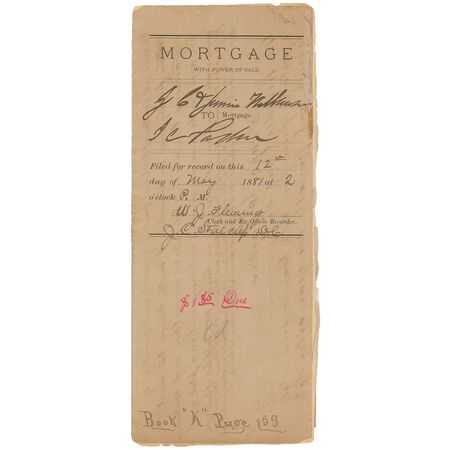 MORTGAGE
WITH POWER OF SALE.
J C & Jennie
TO } Mortgage.
I C Parker
Filed for record on this 12th
day of May 1881 at 2
o'clock P. M.
W. J. Fleming
Clerk and Ex Officio Recorder.
J. C. Stalcup D.C.
$1.85 Due
Book "K" Page 159